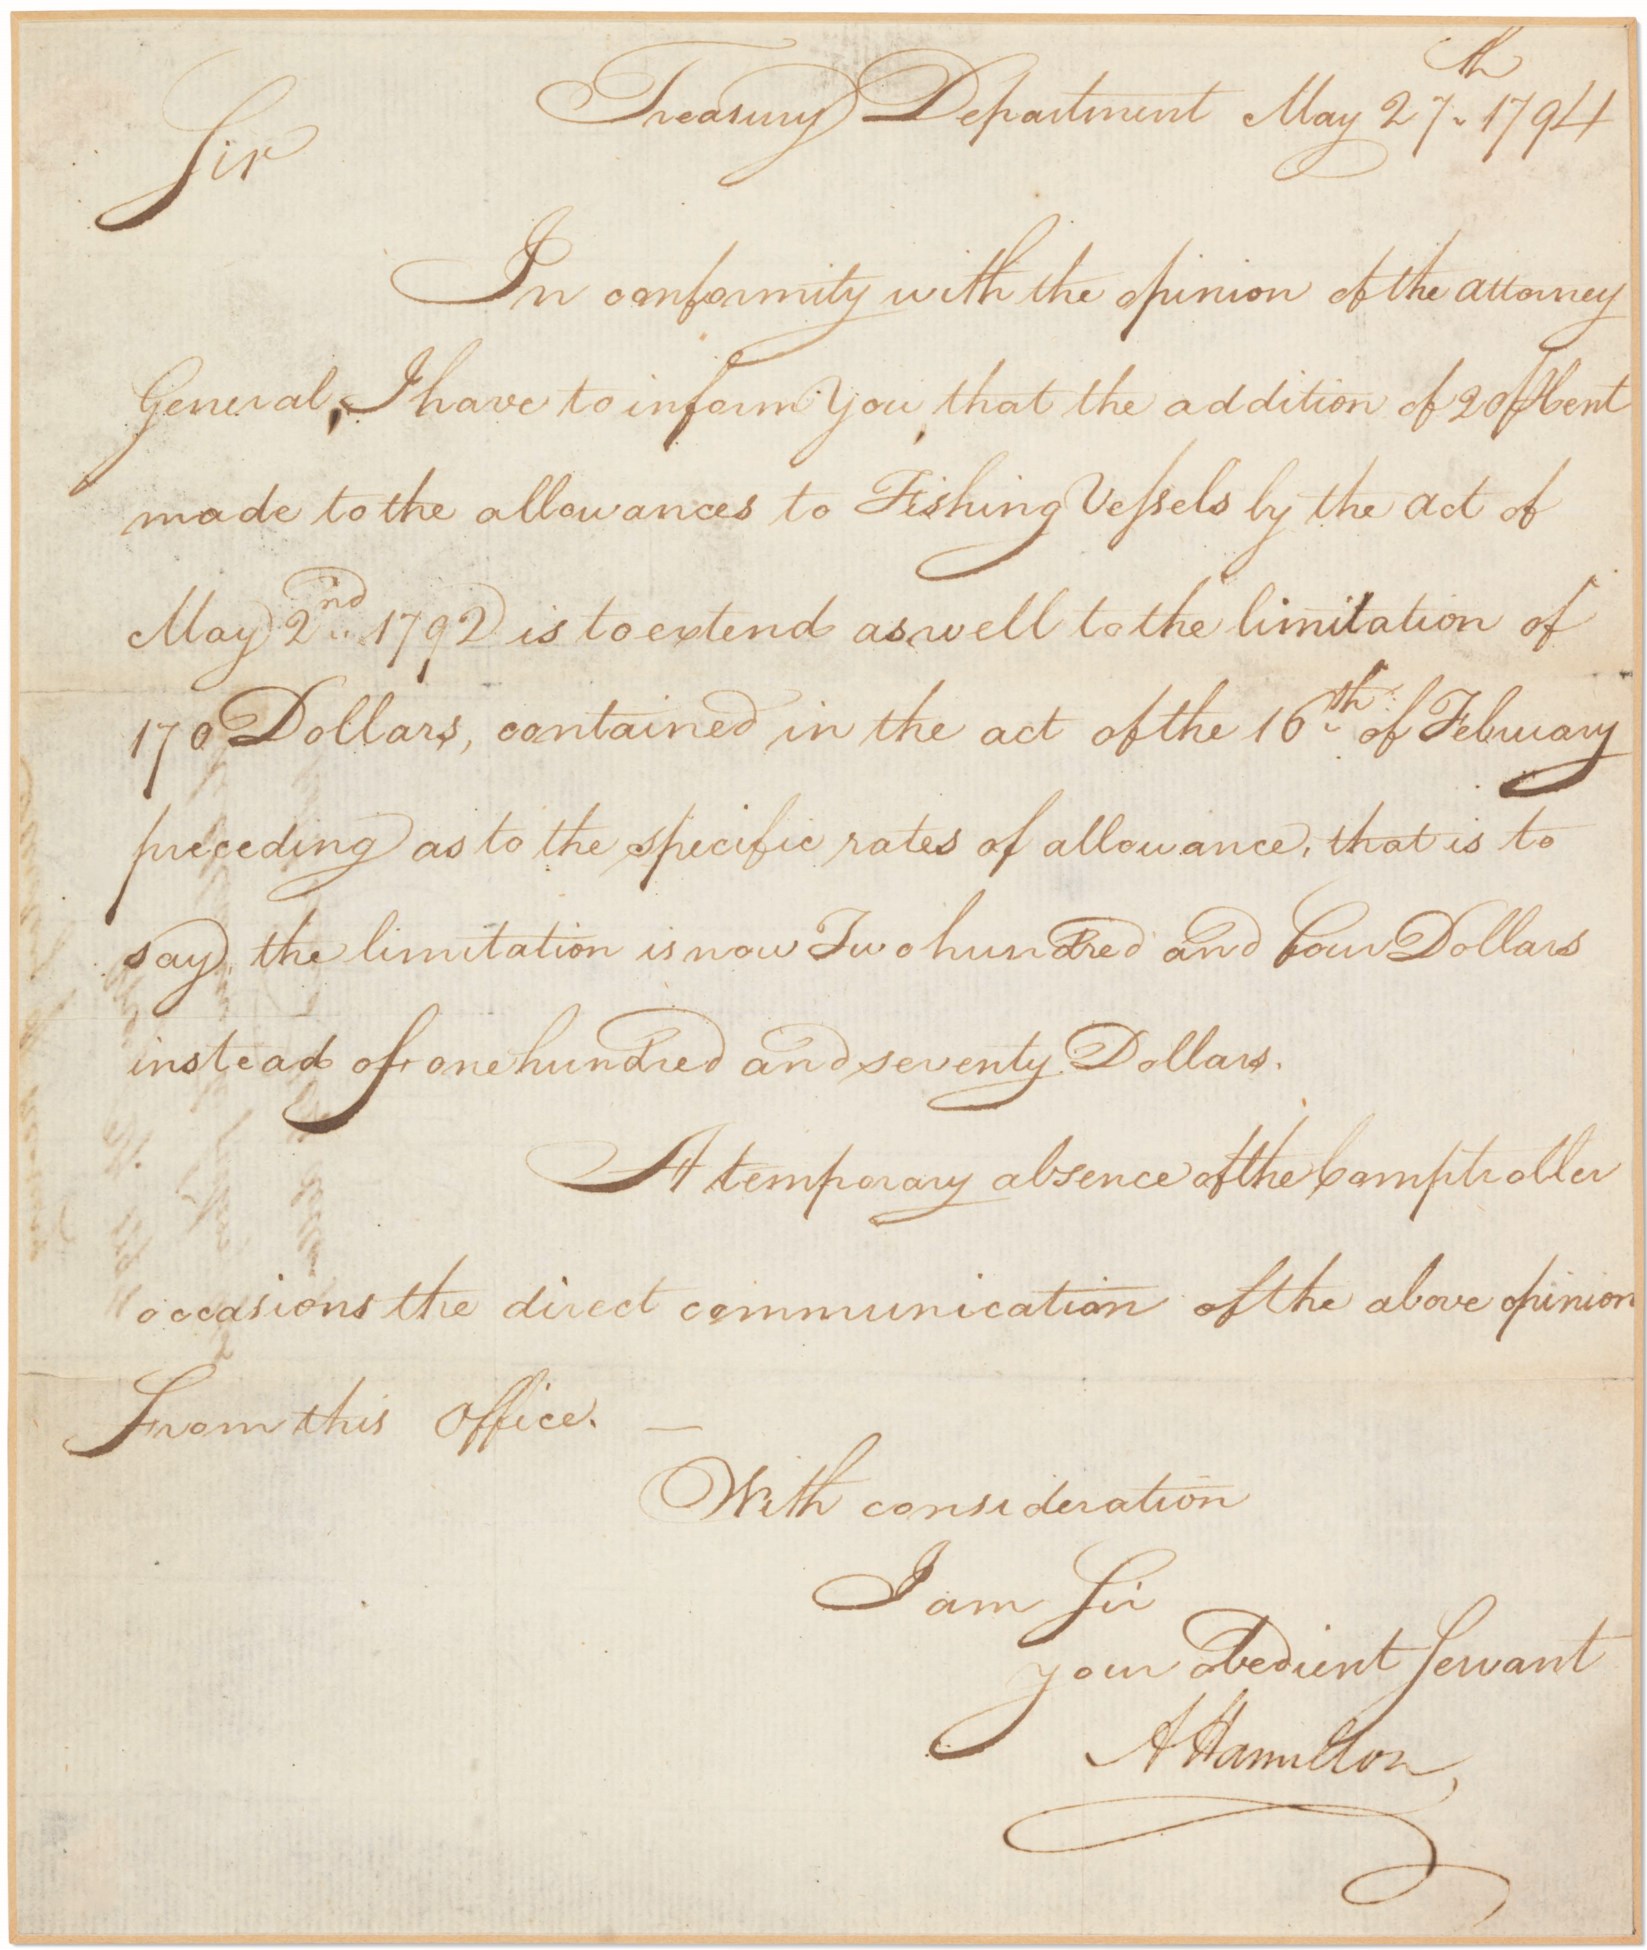 Treasury Department May 27th 1794
Sir
In conformity with the opinion of the attorney
General, I have to inform You, that the addition of 20 ⅌ Cent
made to the allowances to Fishing Veſsels by the act of
May 2nd 1792 is to extend as well to the limitation of
170 Dollars, contained in the act of the 16th of February
preceding as to the specific rates of allowance, that is to
say, the limitation is now Two hundred and four Dollars
instead of one hundred and seventy Dollars.
A temporary absence of the Comptroller
occasions the direct communication of the above opinion
From this Office. —
With consideration
I am Sir
your obedient Servant
A Hamilton